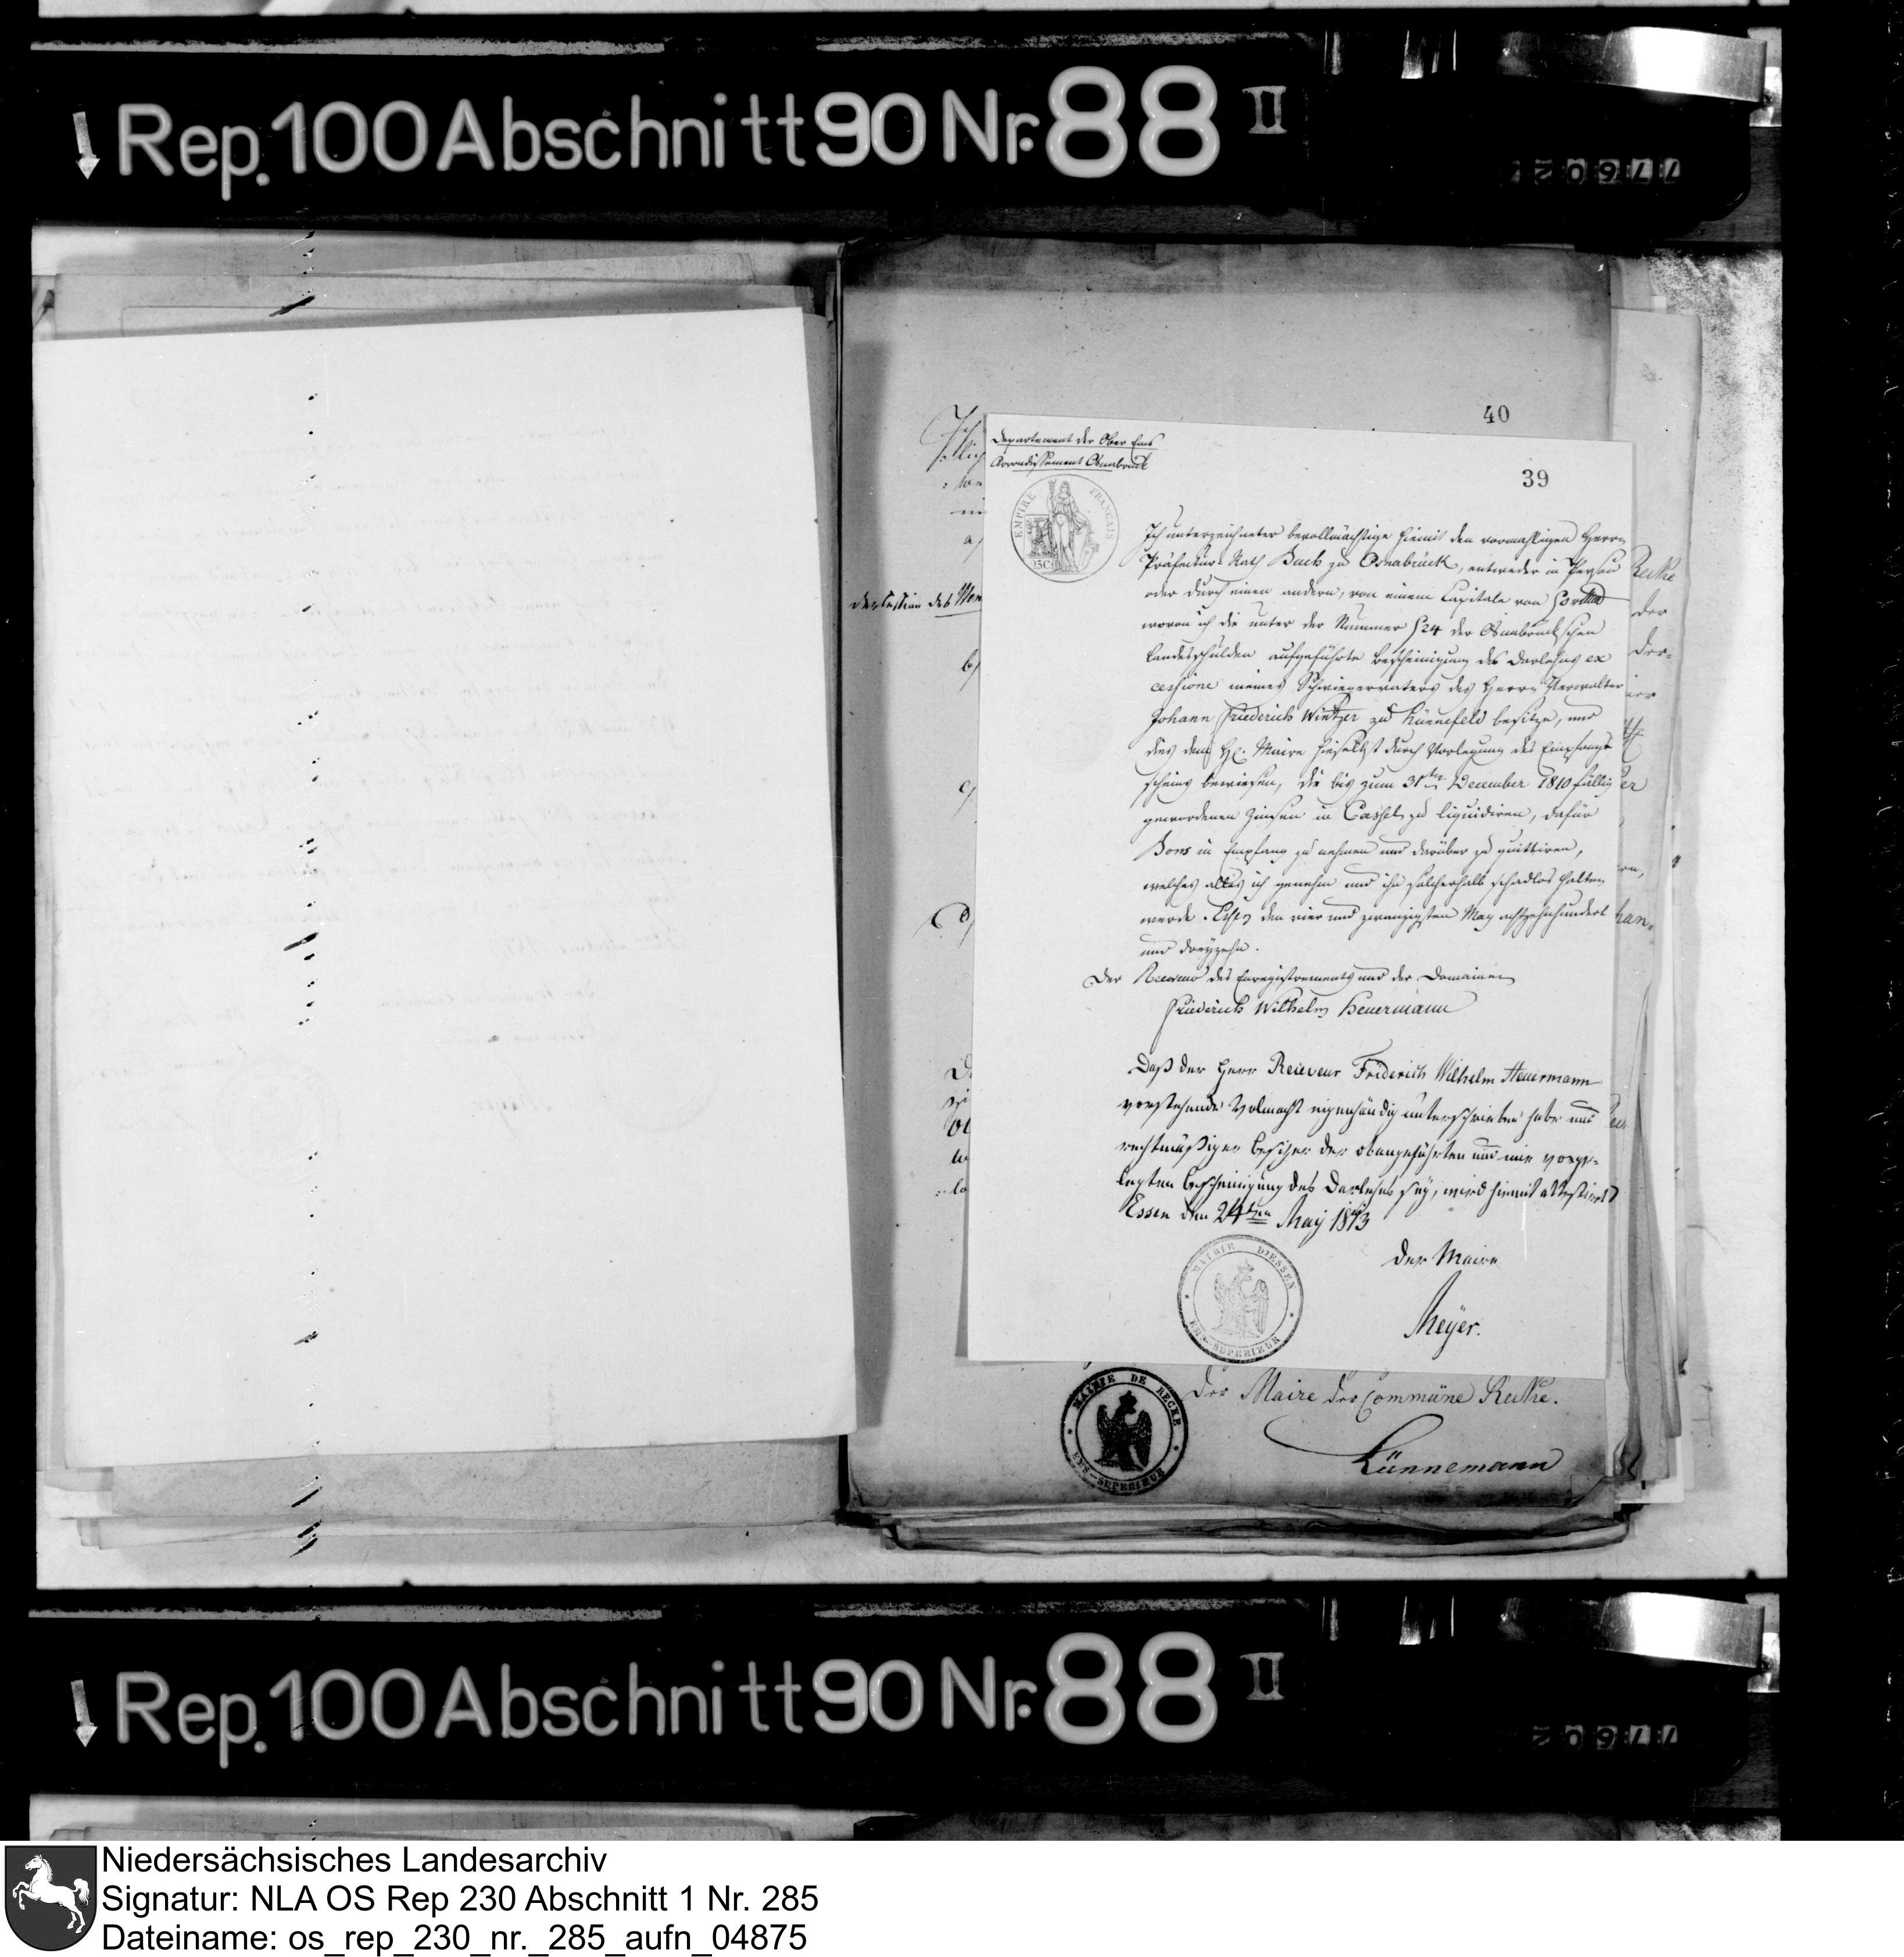 Rep. 100 Abschnitt 90 Nr. 88 II
77602
40
Departement der Ober Ems
Arrondissement Osnabrück
39
EMPIRE FRANÇAIS
25C
Ich unterzeichneter bevollmächtige hiemit den vormahligen Herrn
Präfectur-Rath Buch zu Osnabrück, entweder in Person
oder durch einen andern, von einem Capitale von
wovon ich die unter der Nummer 524 der Osnabrückschen
Landesschülden aufgeführte Bescheinigung des Darlehns ex
cessione meines Schwiegervaters des Herrn Verwalter
Johann Friederich Wintzer zu Hünnefeld besitze, und
dies dem H. Maire hieselbst durch Vorlegung des Empfangs
scheins bewiesen, die bis zum 31ten December 1810 fällig
gewordenen Zinsen in Cassel zu liquidiren, dafür
Bons in Empfang zu nehmen und darüber zu quittiren,
welches alles ich genehm und ihn solcherhalb schadlos halten
werde. Essen den vier und zwanzigsten May achtzehnhundert
und dreyzehn.
Der Receveur des Enregistrements und der Domainen
Friederich Wilhelm Heuermann
Daß der Herr Receveur Friderich Wilhelm Heuermann
vorstehende Volmacht eigenhändig unterschrieben habe und
rechtmäßiger Besitzer der obangeführten und mir vorge-
legten Bescheinigung des Darlehns sey, wird hiemit attestirt
Essen den 24ten May 1813
Der Maire
Meÿer.
MAIRIE D'ESSEN
EMS-SUPERIEUR
der Cession des
a)
b)
c)
d)
Recke
der
der-
han-
MAIRIE DE RECKE
EMS-SUPERIEUR
Der Maire der Commüne Recke.
Lünnemann
Rep. 100 Abschnitt 90 Nr. 88 II
77602
Niedersächsisches Landesarchiv
Signatur: NLA OS Rep 230 Abschnitt 1 Nr. 285
Dateiname: os_rep_230_nr._285_aufn_04875